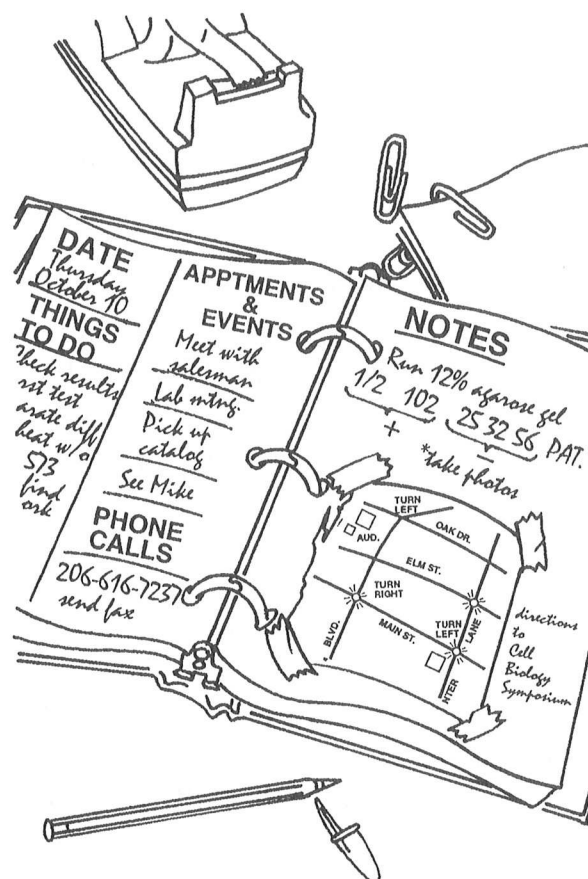 DATE
Thursday
October 10
THINGS
TO DO
check results
test
diff
heat w/o
573
find
APPTMENTS
&
EVENTS
Meet with
salesman
Lab mtng.
Pick up
catalog
See Mike
PHONE
CALLS
206-616-7237
send fax
NOTES
Run 12% agarose gel
1/2 102 25 32 56 PAT.
+ −
*take photos
TURN
LEFT
OAK DR.
AUD.
ELM ST.
TURN
RIGHT
MAIN ST.
TURN
LEFT
BLVD.
LANE
NTER
directions
to
Cell
Biology
Symposium